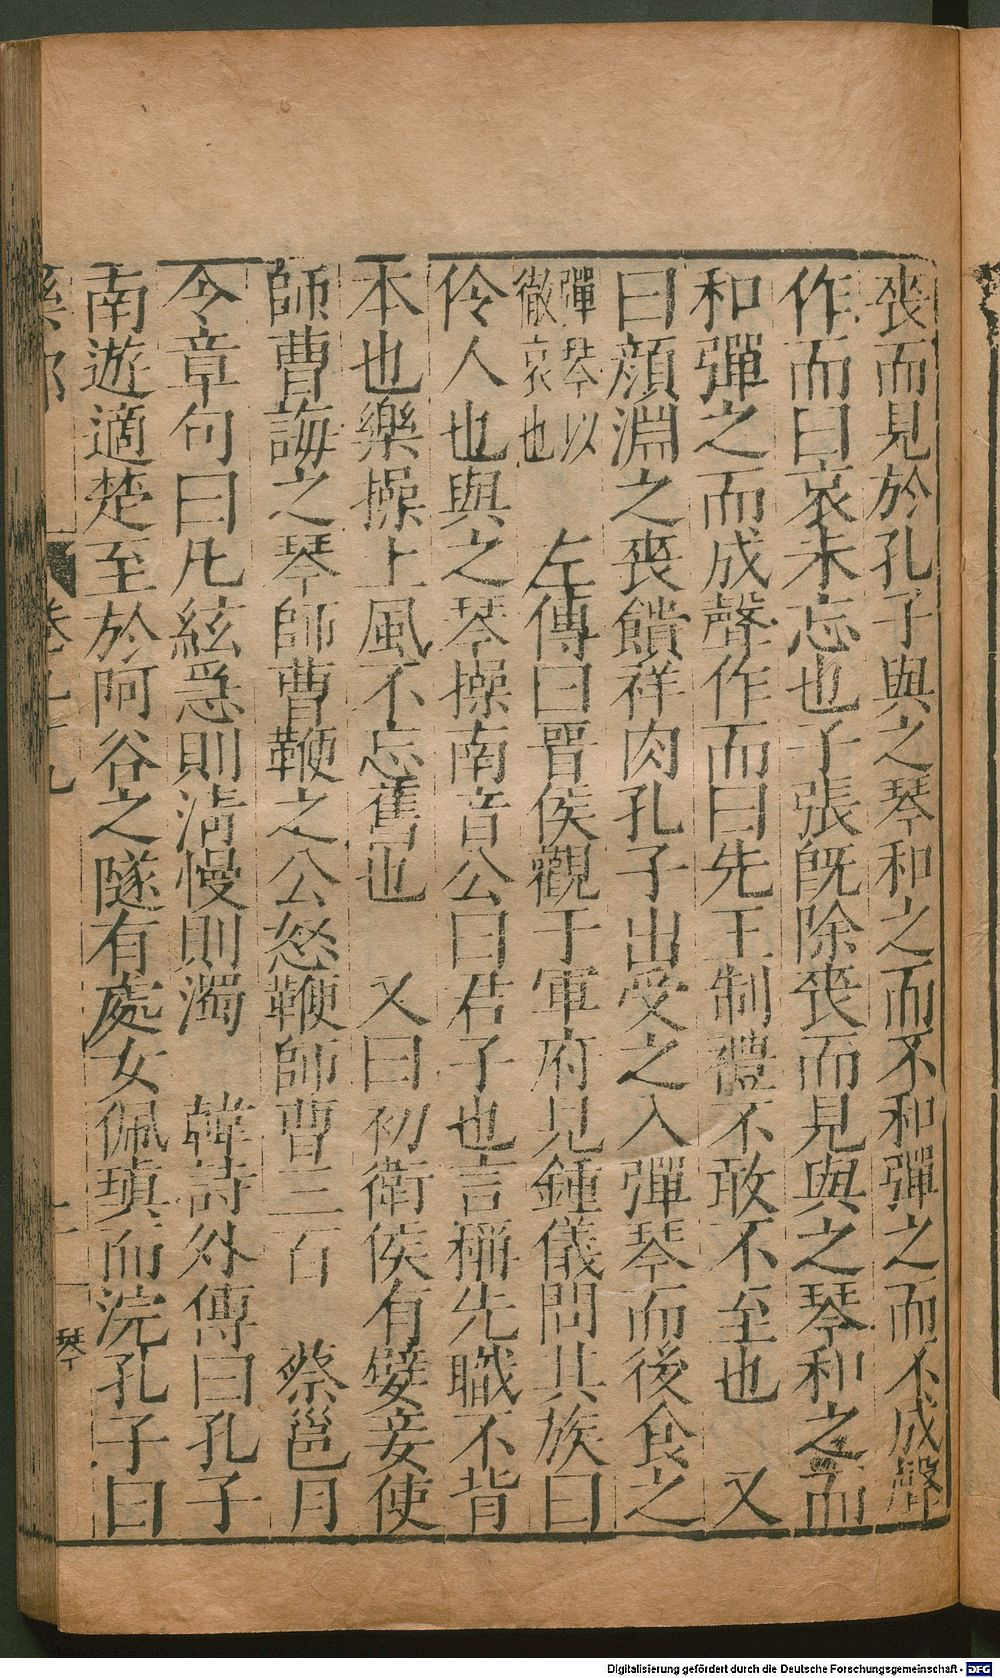 喪而見於孔子與之琴和之而不和彈之而不成聲
作而曰哀未忘也子張旣除喪而見與之琴和之而
和彈之而成聲作而曰先王制禮不敢不至也　又
曰顔淵之喪饋祥肉孔子出受之入彈琴而後食之
彈琴以
徹哀也
左傳曰晋侯觀于軍府見鍾儀問其族曰
伶人也與之琴操南音公曰君子也言稱先職不背
本也樂操土風不忘舊也　又曰初衛侯有嬖妾使
師曹誨之琴師曹鞭之公怒鞭師曹三百　蔡邕月
令章句曰凡絃急則淸慢則濁　韓詩外傳曰孔子
南遊適楚至於阿谷之隧有處女佩瑱而浣孔子曰
琴
Digitalisierung gefördert durch die Deutsche Forschungsgemeinschaft - DFG